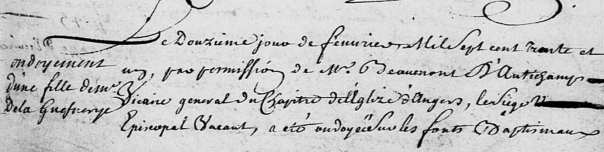 Le Douzieme jour de fevrier Mil Sept cent trente et
un, par permission de Mr. Beaumont D'Antichamp
Vicaire general du Chapitre de l'Eglise d'Angers, le Siege
Episcopal Vacant, a été ondoyée Sur les fonts Baptismaux
ondoyement
d'une fille de mr
De la Gueffrerye